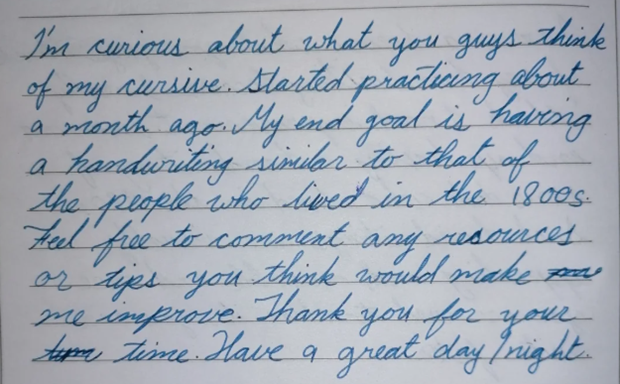 I'm curious about what you guys think
of my cursive. Started practicing about
a month ago. My end goal is having
a handwriting similar to that of
the people who lived in the 1800s.
Feel free to comment any resources
or tips you think would make
me improve. Thank you for your
time. Have a great day/night.